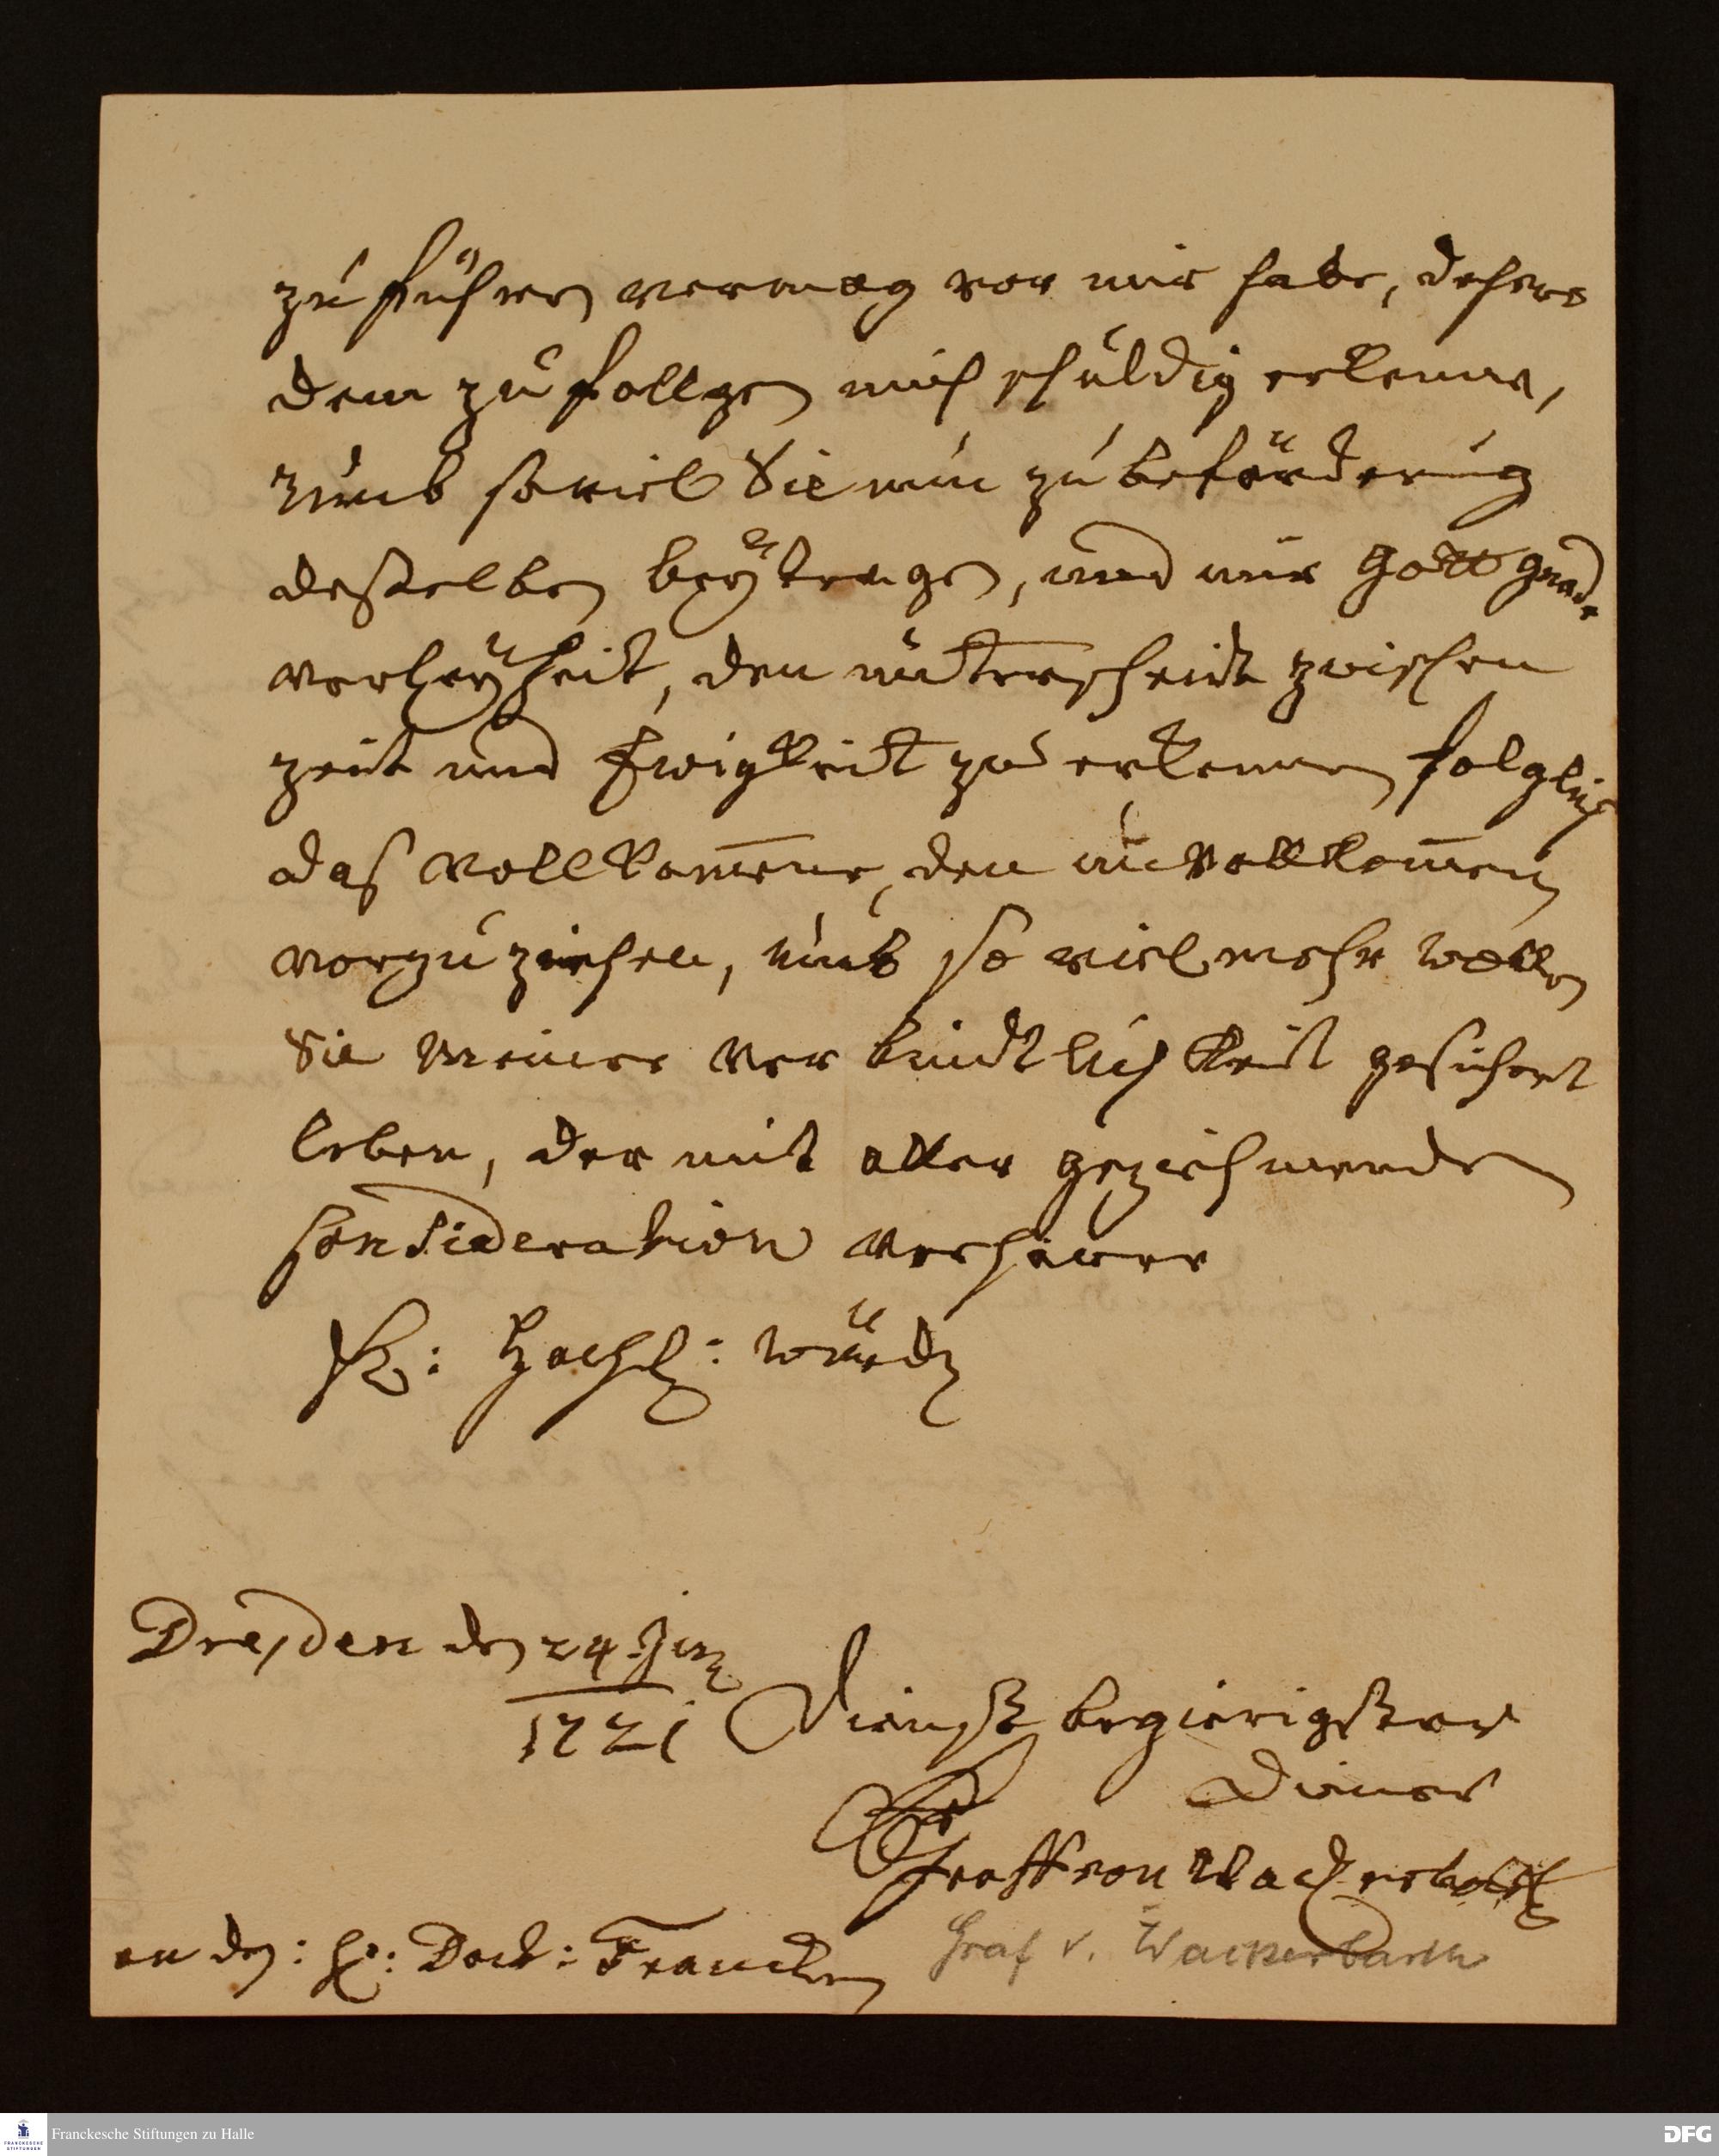 zu führen vermag vor mir habe, desen
dem zu follgen mich schuldig erkenne,
umb soviel Sie nun zu beförderung
deßelben beÿtragen, und mir Gott gnade
verleyheit, den unterscheidt zwischen
zeit und Ewigkeit zu erkennen folglich
daß vollkom̄ene, den unvollkom̄en
vorzuziehen, umb so vielmehr wollen
Sie meiner verbindtligkeit gesichert
leben, der mit aller geziehmenden
Consideration verharre
Ew: Hochh: würd
Dresden den 24. Jun
1721 Dienst begierigster
Diener
Graff von Wackerbarth
an den: H: Doct: Francken
Graf v. Wackerbarth
Franckesche Stiftungen zu Halle
FRANCKESCHE STIFTUNGEN
DFG